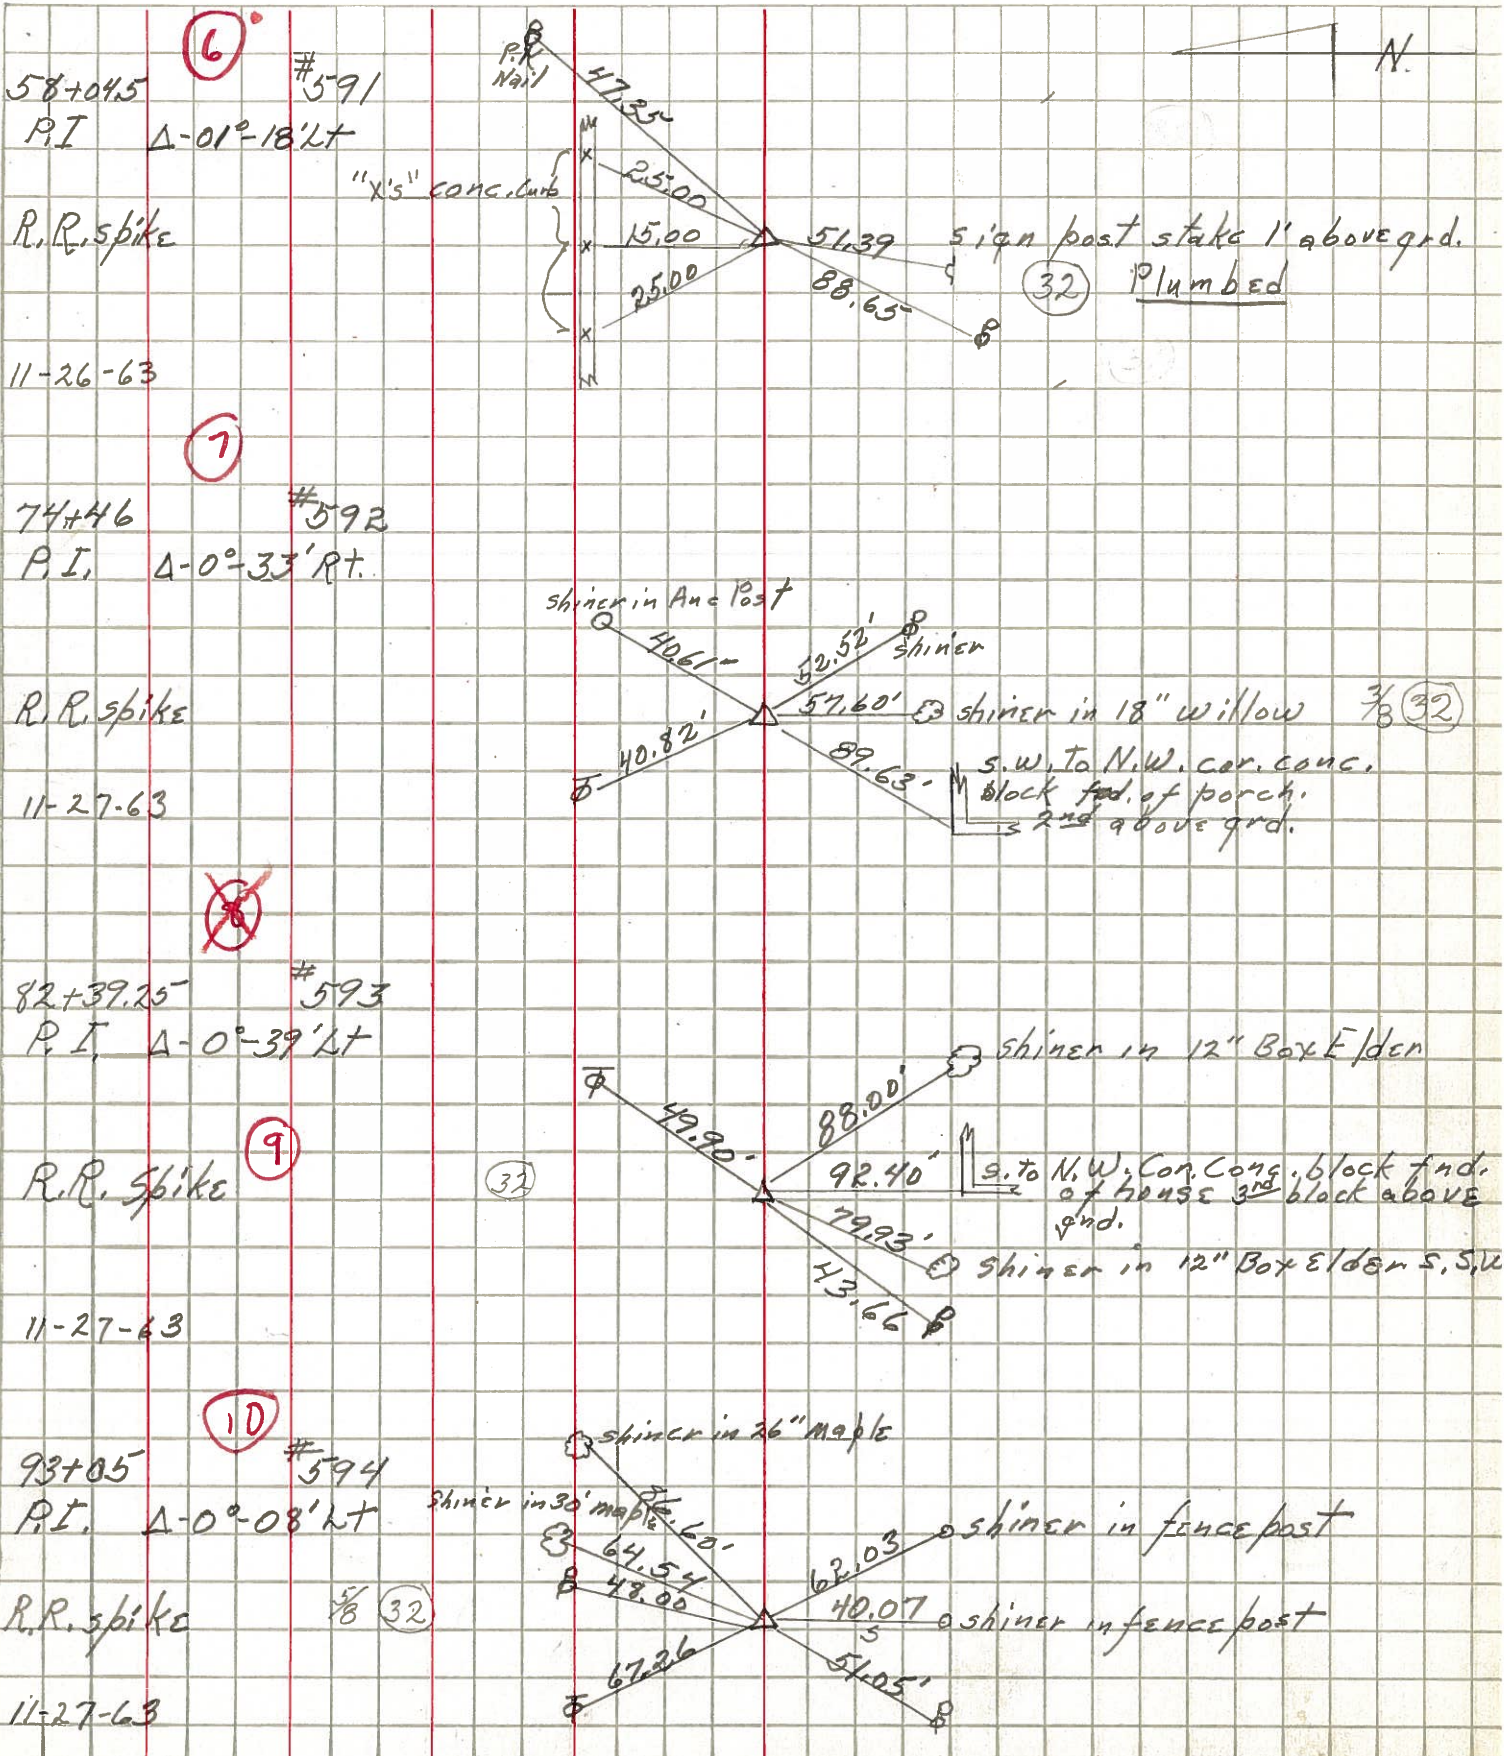 6
58+04.5 #591
P.I. Δ-01°-18' Lt
R.R. spike
11-26-63
P.K. Nail
47.35
"X's" conc. Curb
25.00
15.00
25.00
51.39
88.65
sign post stake 1' above grd.
32 Plumbed
N.
7
74+46 #592
P.I. Δ-0°-33' Rt.
R.R. spike
11-27-63
shiner in Anc Post
40.61
52.52'
shiner
57.60' shiner in 18" willow 3/8 32
40.82'
89.63
S.W. To N.W. cor. conc.
block fnd. of porch.
s 2nd above grd.
8
82+39.25 #593
P.I. Δ-0°-39' Lt
9
R.R. Spike 32
11-27-63
49.90'
88.00' shiner in 12" Box Elder
92.40' s. to N.W. Cor. Conc. block fnd.
of house 3rd block above
grd.
79.93' shiner in 12" Box Elder S.S.W
43.66
10
93+05 #594
P.I. Δ-0°-08' Lt
R.R. spike 5/8 32
11-27-63
shiner in 26" maple
shiner in 30' maple
64.54
48.00
67.26
62.03 shiner in fence post
40.07 shiner in fence post
S
51.05'